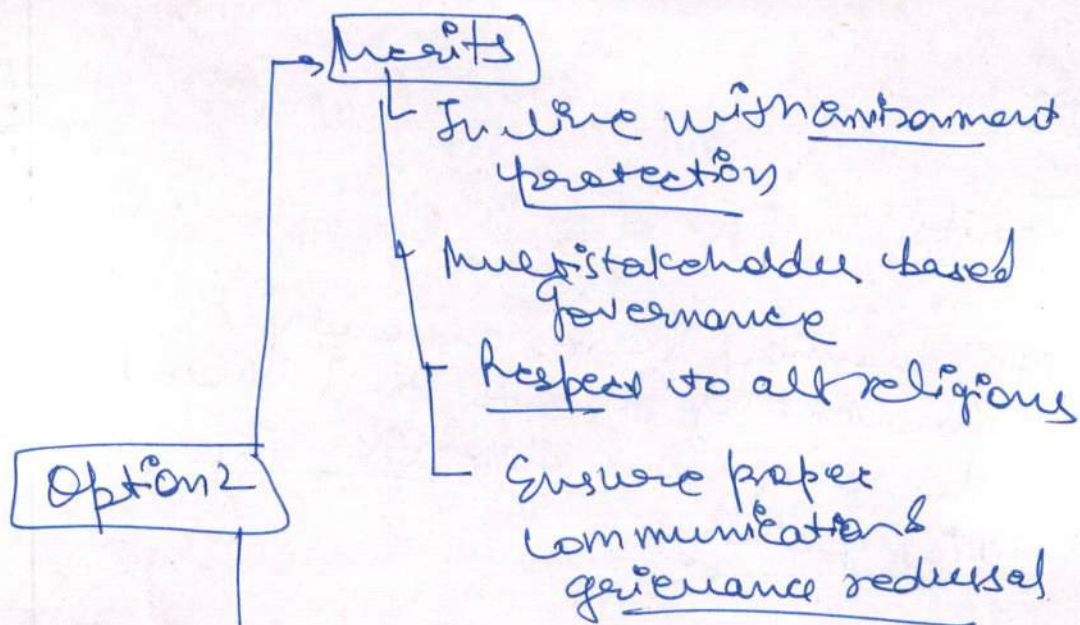 Merits
In line with environment
protection
Multistakeholder based
governance
Respect to all religions
Option 2
Ensure proper
communication &
grievance redressal